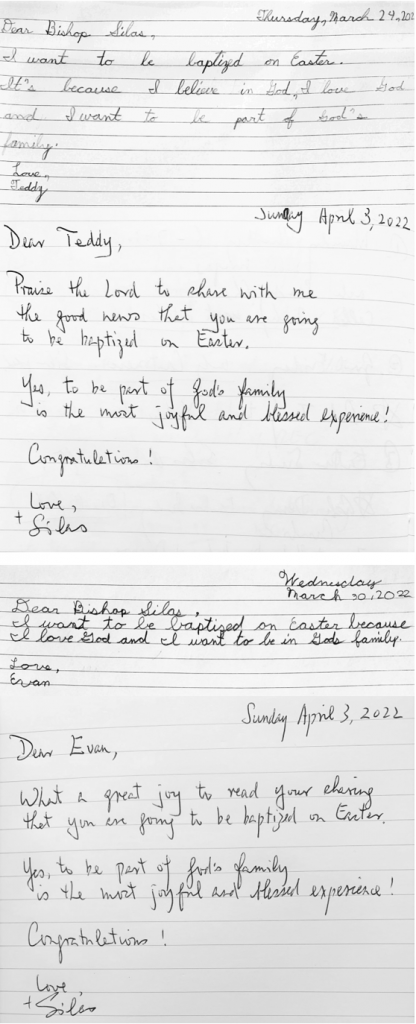 Thursday, March 24, 202
Dear Bishop Silas,
I want to be baptized on Easter.
It's because I believe in God, I love God
and I want to be part of God's
family.
Love,
Teddy
Sunday April 3, 2022
Dear Teddy,
Praise the Lord to share with me
the good news that you are going
to be baptized on Easter.
Yes, to be part of God's family
is the most joyful and blessed experience!
Congratuletions!
Love,
+ Silas
Wednesday
March 30, 2022
Dear Bishop Silas,
I want to be baptized on Easter because
I love God and I want to be in Gods family.
Love,
Evan
Sunday April 3, 2022
Dear Evan,
What a great joy to read your sharing
that you are going to be baptized on Easter.
Yes, to be part of God's family
is the most joyful and blessed experience!
Congratuletions!
Love,
+ Silas